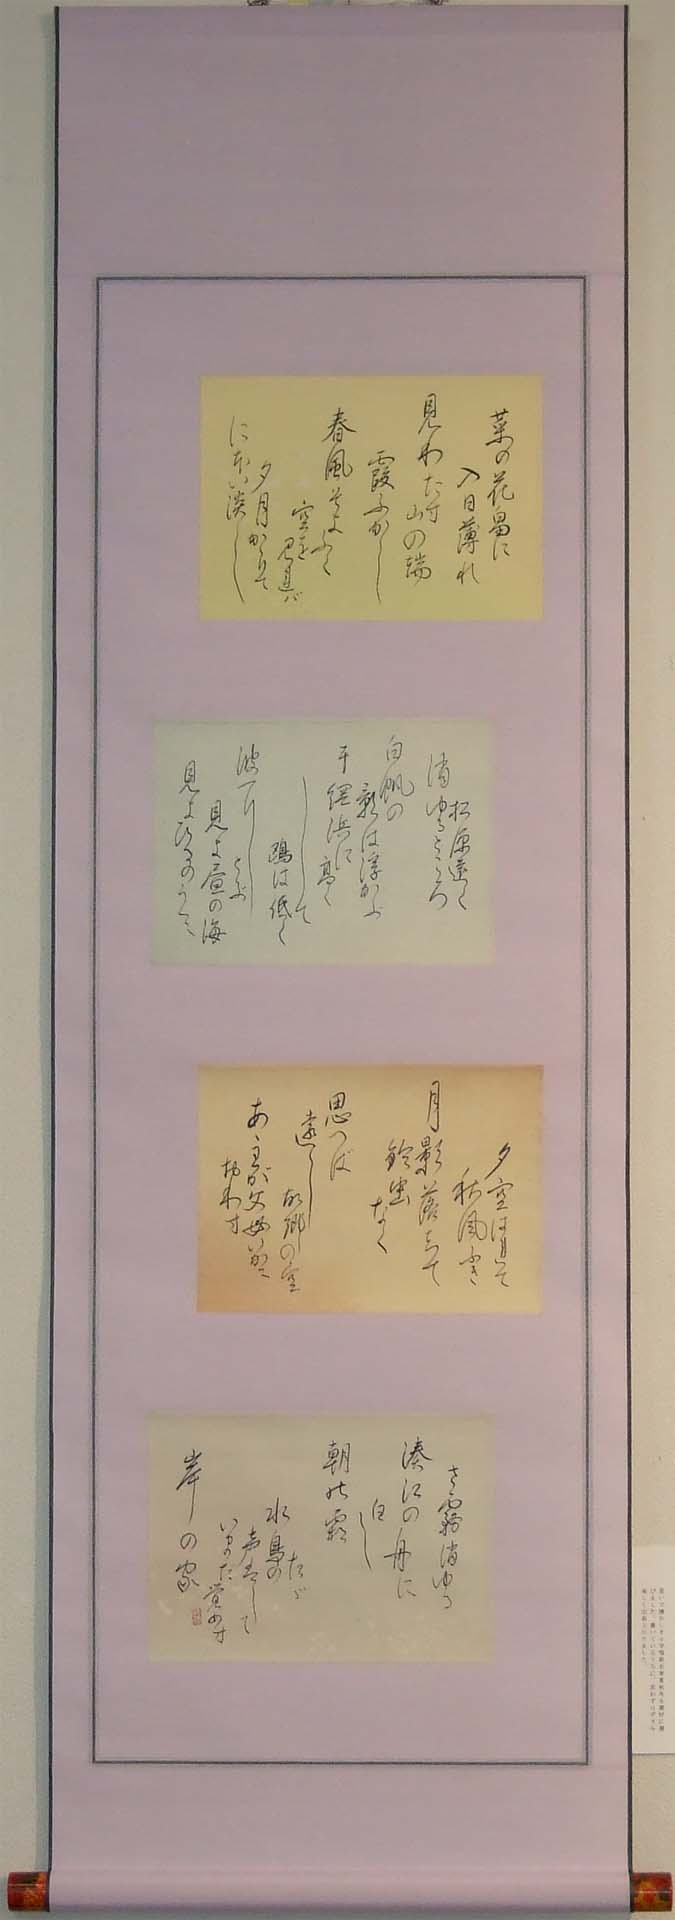 菜の花畠に
入日薄れ
見わたす
山の端
霞ふかし
春風そよふく
空を見れば
夕月かゝりて
にほい淡し
松原遠く
消ゆるところ
白帆の
影は浮かぶ
干網浜に
高くして
鴎は低く
波にとぶ
見よ昼の海
見よひるのうみ
夕空はれて
秋風ふき
月影落ちて
鈴虫なく
思へば
遠し
故郷の空
あゝわが父母いかに
おわす
さ霧消ゆる
湊江の舟に
白し
朝の霜
たゞ
水鳥の
声はして
いまだ覚めず
岸の家